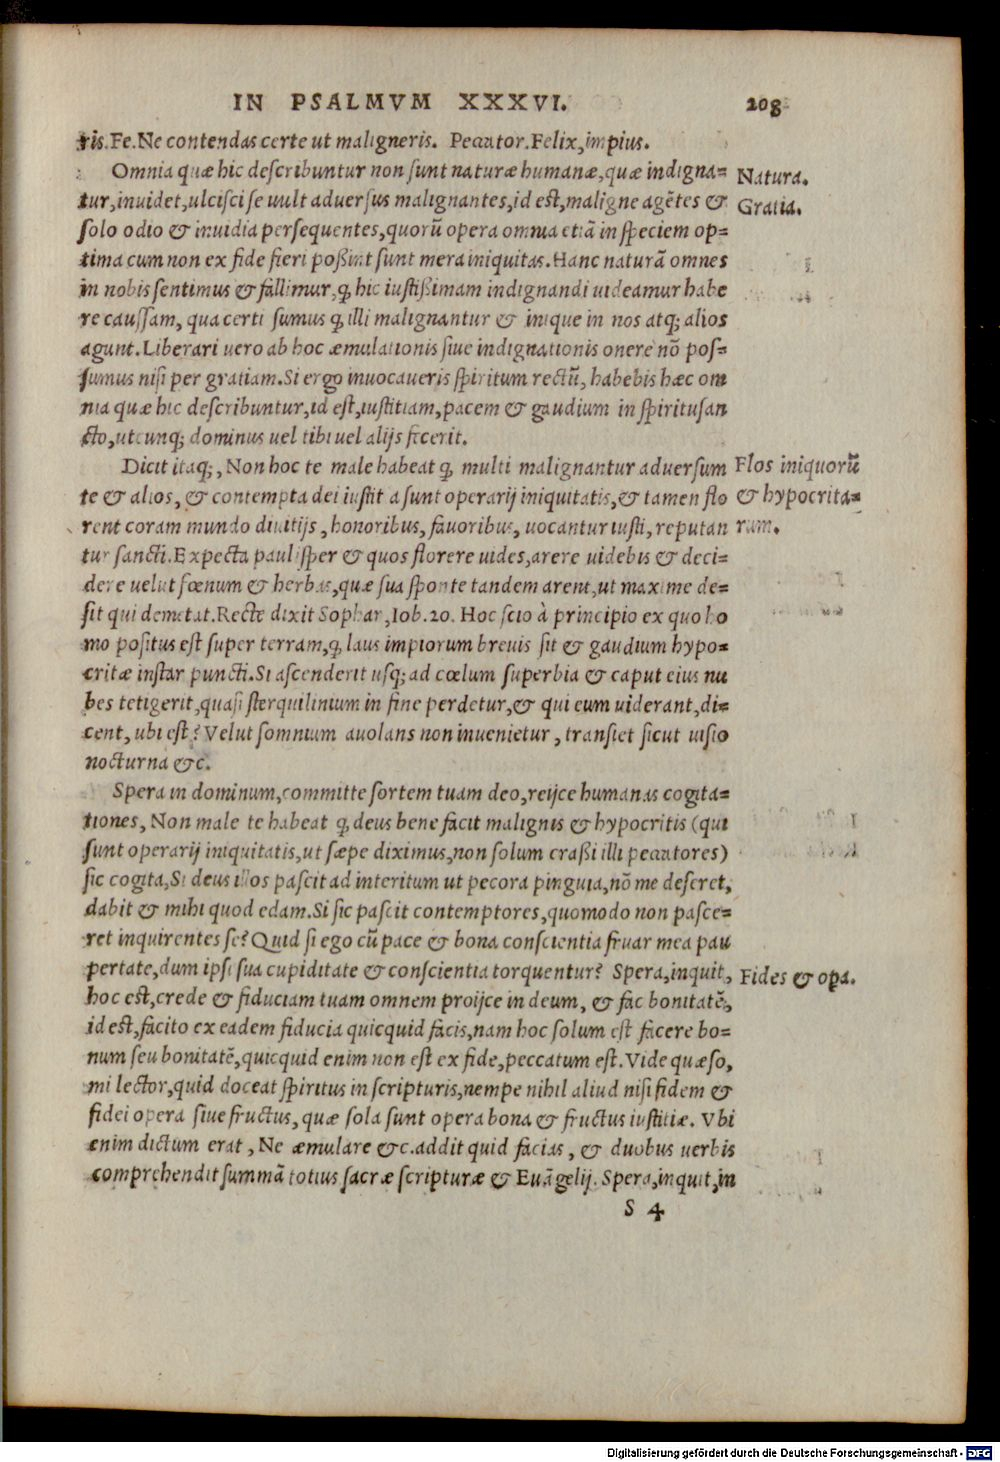 IN PSALMVM XXXVI. 208
ris. Fe. Ne contendas certe ut maligneris. Peccator. Felix, impius.
Omnia quæ hic describuntur non sunt naturæ humanæ, quæ indigna=
Natura.
tur, inuidet, ulcisci se uult aduersus malignantes, id est, maligne agētes &
Gratia.
solo odio & inuidia persequentes, quorū opera omnia etiā in speciem op=
tima cum non ex fide fieri poßint sunt mera iniquitas. Hanc naturā omnes
in nobis sentimus & fallimur, ꝙ hic iustißimam indignandi uideamur habe
re caussam, qua certi sumus ꝙ illi malignantur & inique in nos atq; alios
agunt. Liberari uero ab hoc æmulationis siue indignationis onere nō pos=
sumus nisi per gratiam. Si ergo inuocaueris spiritum rectū, habebis hæc om
nia quæ hic describuntur, id est, iustitiam, pacem & gaudium in spiritusan
cto, utcunq; dominus uel tibi uel alijs fecerit.
Dicit itaq;, Non hoc te male habeat ꝙ multi malignantur aduersum
Flos iniquorū
te & alios, & contempta dei iustit a sunt operarij iniquitatis, & tamen flo
& hypocrita=
rent coram mundo diuitijs, honoribus, fauoribus, uocantur iusti, reputan
rum.
tur sancti. Expecta paulisper & quos florere uides, arere uidebis & deci=
dere uelut fœnum & herbas, quæ sua sponte tandem arent, ut maxime de=
sit qui demetat. Recte dixit Sophar, Iob. 20. Hoc scio à principio ex quo ho
mo positus est super terram, ꝙ laus impiorum breuis sit & gaudium hypo=
critæ instar puncti. Si ascenderit usq; ad cœlum superbia & caput eius nu
bes tetigerit, quasi sterquilinium in fine perdetur, & qui eum uiderant, di=
cent, ubi est? Velut somnium auolans non inuenietur, transiet sicut uisio
nocturna &c.
Spera in dominum, committe sortem tuam deo, reijce humanas cogita=
tiones, Non male te habeat ꝙ deus bene facit malignis & hypocritis (qui
sunt operarij iniquitatis, ut sæpe diximus, non solum craßi illi peccatores)
sic cogita, Si deus illos pascit ad interitum ut pecora pinguia, nō me deseret,
dabit & mihi quod edam. Si sic pascit contemptores, quomodo non pasce=
ret inquirentes se? Quid si ego cū pace & bona conscientia fruar mea pau
pertate, dum ipsi sua cupiditate & conscientia torquentur? Spera, inquit,
Fides & opa.
hoc est, crede & fiduciam tuam omnem proijce in deum, & fac bonitatē,
id est, facito ex eadem fiducia quicquid facis, nam hoc solum est facere bo=
num seu bonitatē, quicquid enim non est ex fide, peccatum est. Vide quæso,
mi lector, quid doceat spiritus in scripturis, nempe nihil aliud nisi fidem &
fidei opera siue fructus, quæ sola sunt opera bona & fructus iustitiæ. Vbi
enim dictum erat, Ne æmulare &c. addit quid facias, & duobus uerbis
comprehendit summā totius sacræ scripturæ & Euāgelij. Spera, inquit, in
S 4
Digitalisierung gefördert durch die Deutsche Forschungsgemeinschaft - DFG